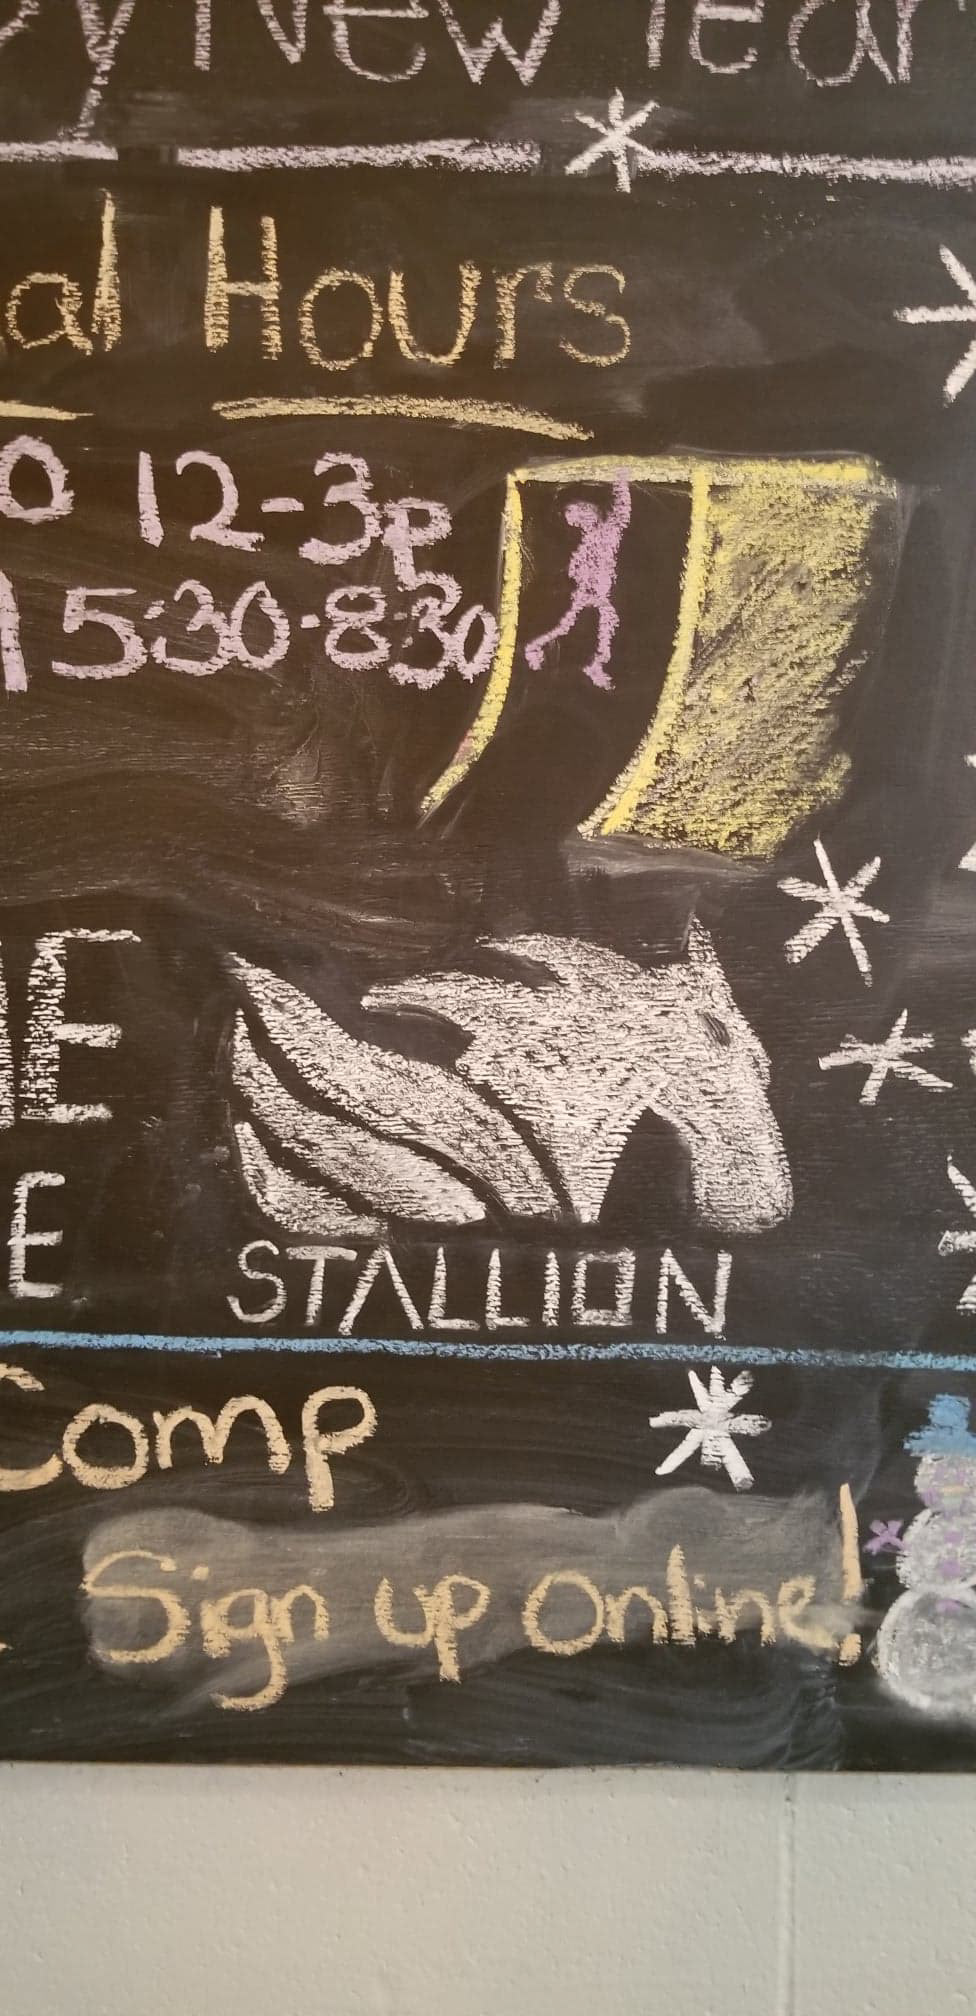 y New Year
al Hours
0 12-3p
5:30-8:30
E
E
STALLION
Comp
Sign up Online!